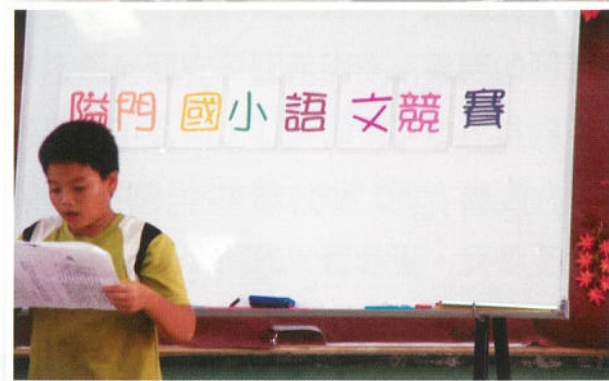 隘門國小語文競賽